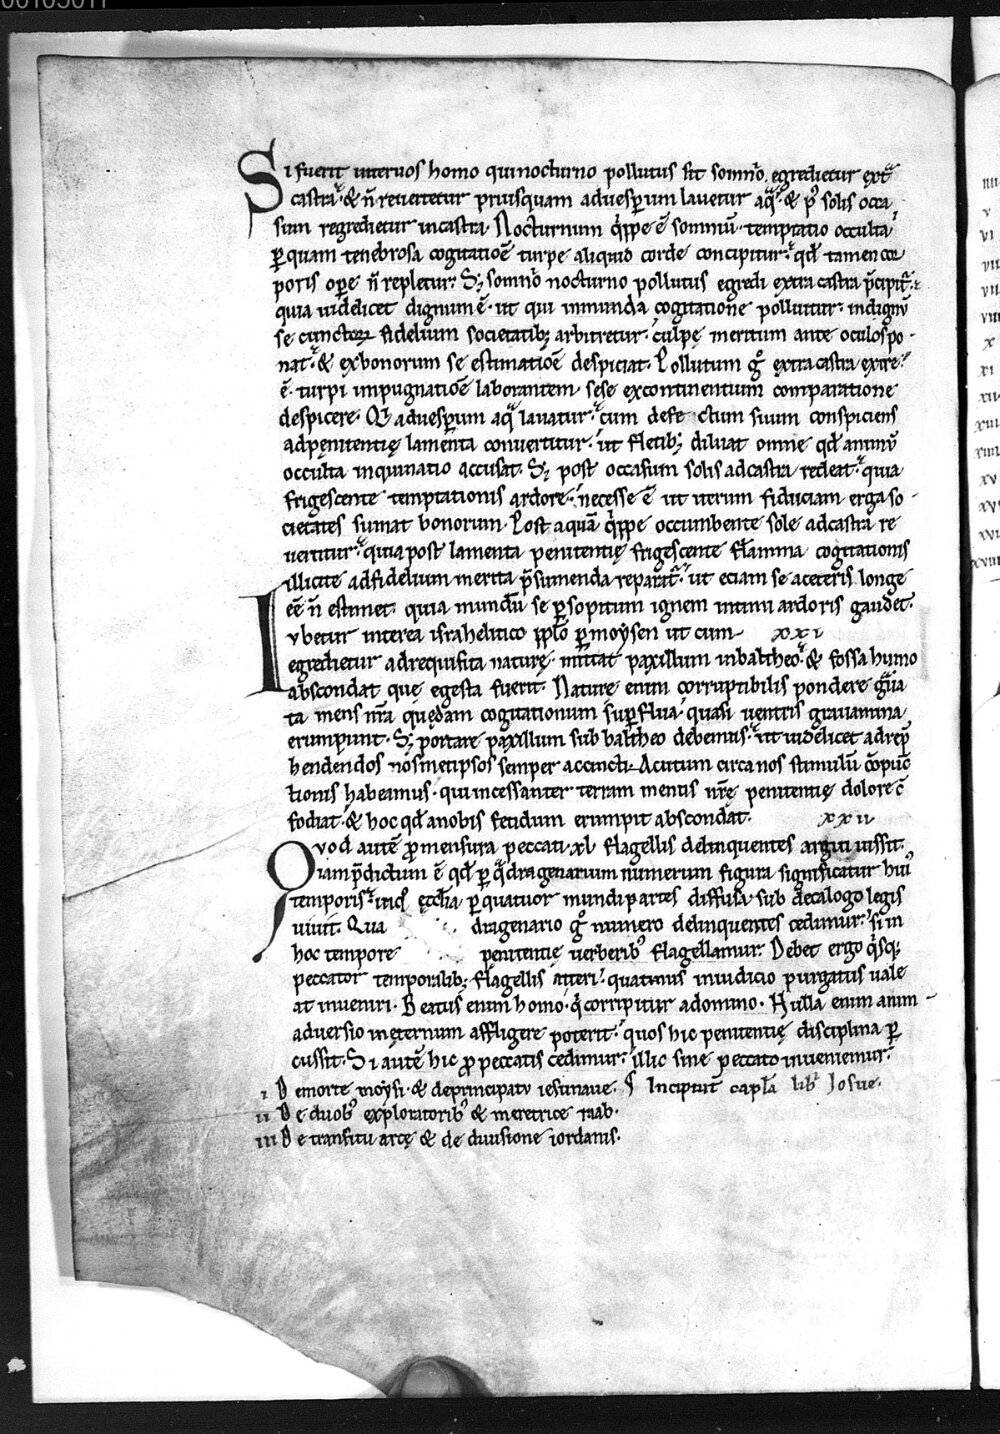 00103011
Si fuerit inter uos homo qui nocturno pollutus sit somnio. egredietur ext̄
castra. & n̄ reuertetur priusquam ad uesꝑum lauetur aq̄. & pꝰ solis occa
sum regredietur in castra. Nocturnum q̄ppe ē somnū temptatio occulta
ꝑ quam tenebrosa cogitatiōe turpe aliquid corde concipitur. qd̄ tamen cor
poris oꝑe n̄ repletur. S; somnio nocturno pollutus egredi extra castra p̄cipit̄.
quia uidelicet dignum ē. ut qui inmunda cogitatione polluitur. indignū
se cunctoꝝ fidelium societatib; arbitretur. culpę meritum ante oculos po
nat. & ex bonorum se estimatiōe despiciat. Pollutum gͦ extra castra exire
ē. turpi impugnatiōe laborantem sese ex continentium comparatione
despicere. Q ad uesꝑum aq̄ lauatur. cum defectum suum conspiciens
ad penitentię lamenta conuertitur. ut fletib; diluat omne qd̄ animū
occulta inquinatio accusat. S; post occasum solis ad castra redeat. quia
frigescente temptationis ardore. necesse ē ut uerum fiduciam erga so
cietates sumat bonorum. Post aquā q̄ppe occumbente sole ad castra re
uertitur. quia post lamenta penitentię frigescente flamma cogitationis
illicite ad fidelium merita p̄sumenda reparat̄. ut eciam se a ceteris longe
eē n̄ estimet. quia mundū se ꝑ sopitum ignem intimi ardoris gaudet.
Iubetur interea israhelitico pplo ꝑ moysen ut cum xxi
egredietur ad requisita naturę. mittat paxillum in baltheo. & fossa humo
abscondat quę egesta fuerit. Nature enim corruptibilis pondere g̃ua
ta mens nr̄a quędam cogitationum suꝑflua quasi uentris grauamina
erumpunt. S; portare paxillum sub baltheo debemus. ut uidelicet ad rep̄
hendendos nosmetipsos semper accincti. Acutum circa nos stimulū cōpūc
tionis habeamus. qui incessanter terram mentis nr̄ę penitentię dolore c̄
fodiat. & hoc qd̄ a nobis fetidum erumpit abscondat. xxii
Quod autē ꝓ mensura peccati. xl. flagellis delinquentes argui iussit.
iam p̄dictum ē qd̄ ꝑ q̄dragenarium numerum figura significatur huiꝰ
temporis. in q̊ ęcclia ꝑ quatuor mundi partes diffusa sub decalogo legis
uiuit. Quadragenario gͦ numero delinquentes cedimur. si in
hoc tempore penitentię uerberibꝰ flagellamur. Debet ergo q̄sq;
peccator temporalib; flagellis atteri. quatinus in iudicio purgatus uale
at inueniri. Beatus enim homo q̄ corripitur a domino. Nulla enim anim
aduersio in ęternum affligere poterit. quos hic penitentię disciplina ꝑ
cussit. Si autē hic ꝓ peccatis cedimur. illic sine peccato inueniemur.
i De morte moysi. & de principatu iesu naue. Incipiūt capl̄a lib̄ Iosue.
ii De duobꝰ exploratoribꝰ & meretrice raab.
iii De transitu arcę & de diuisione iordanis.